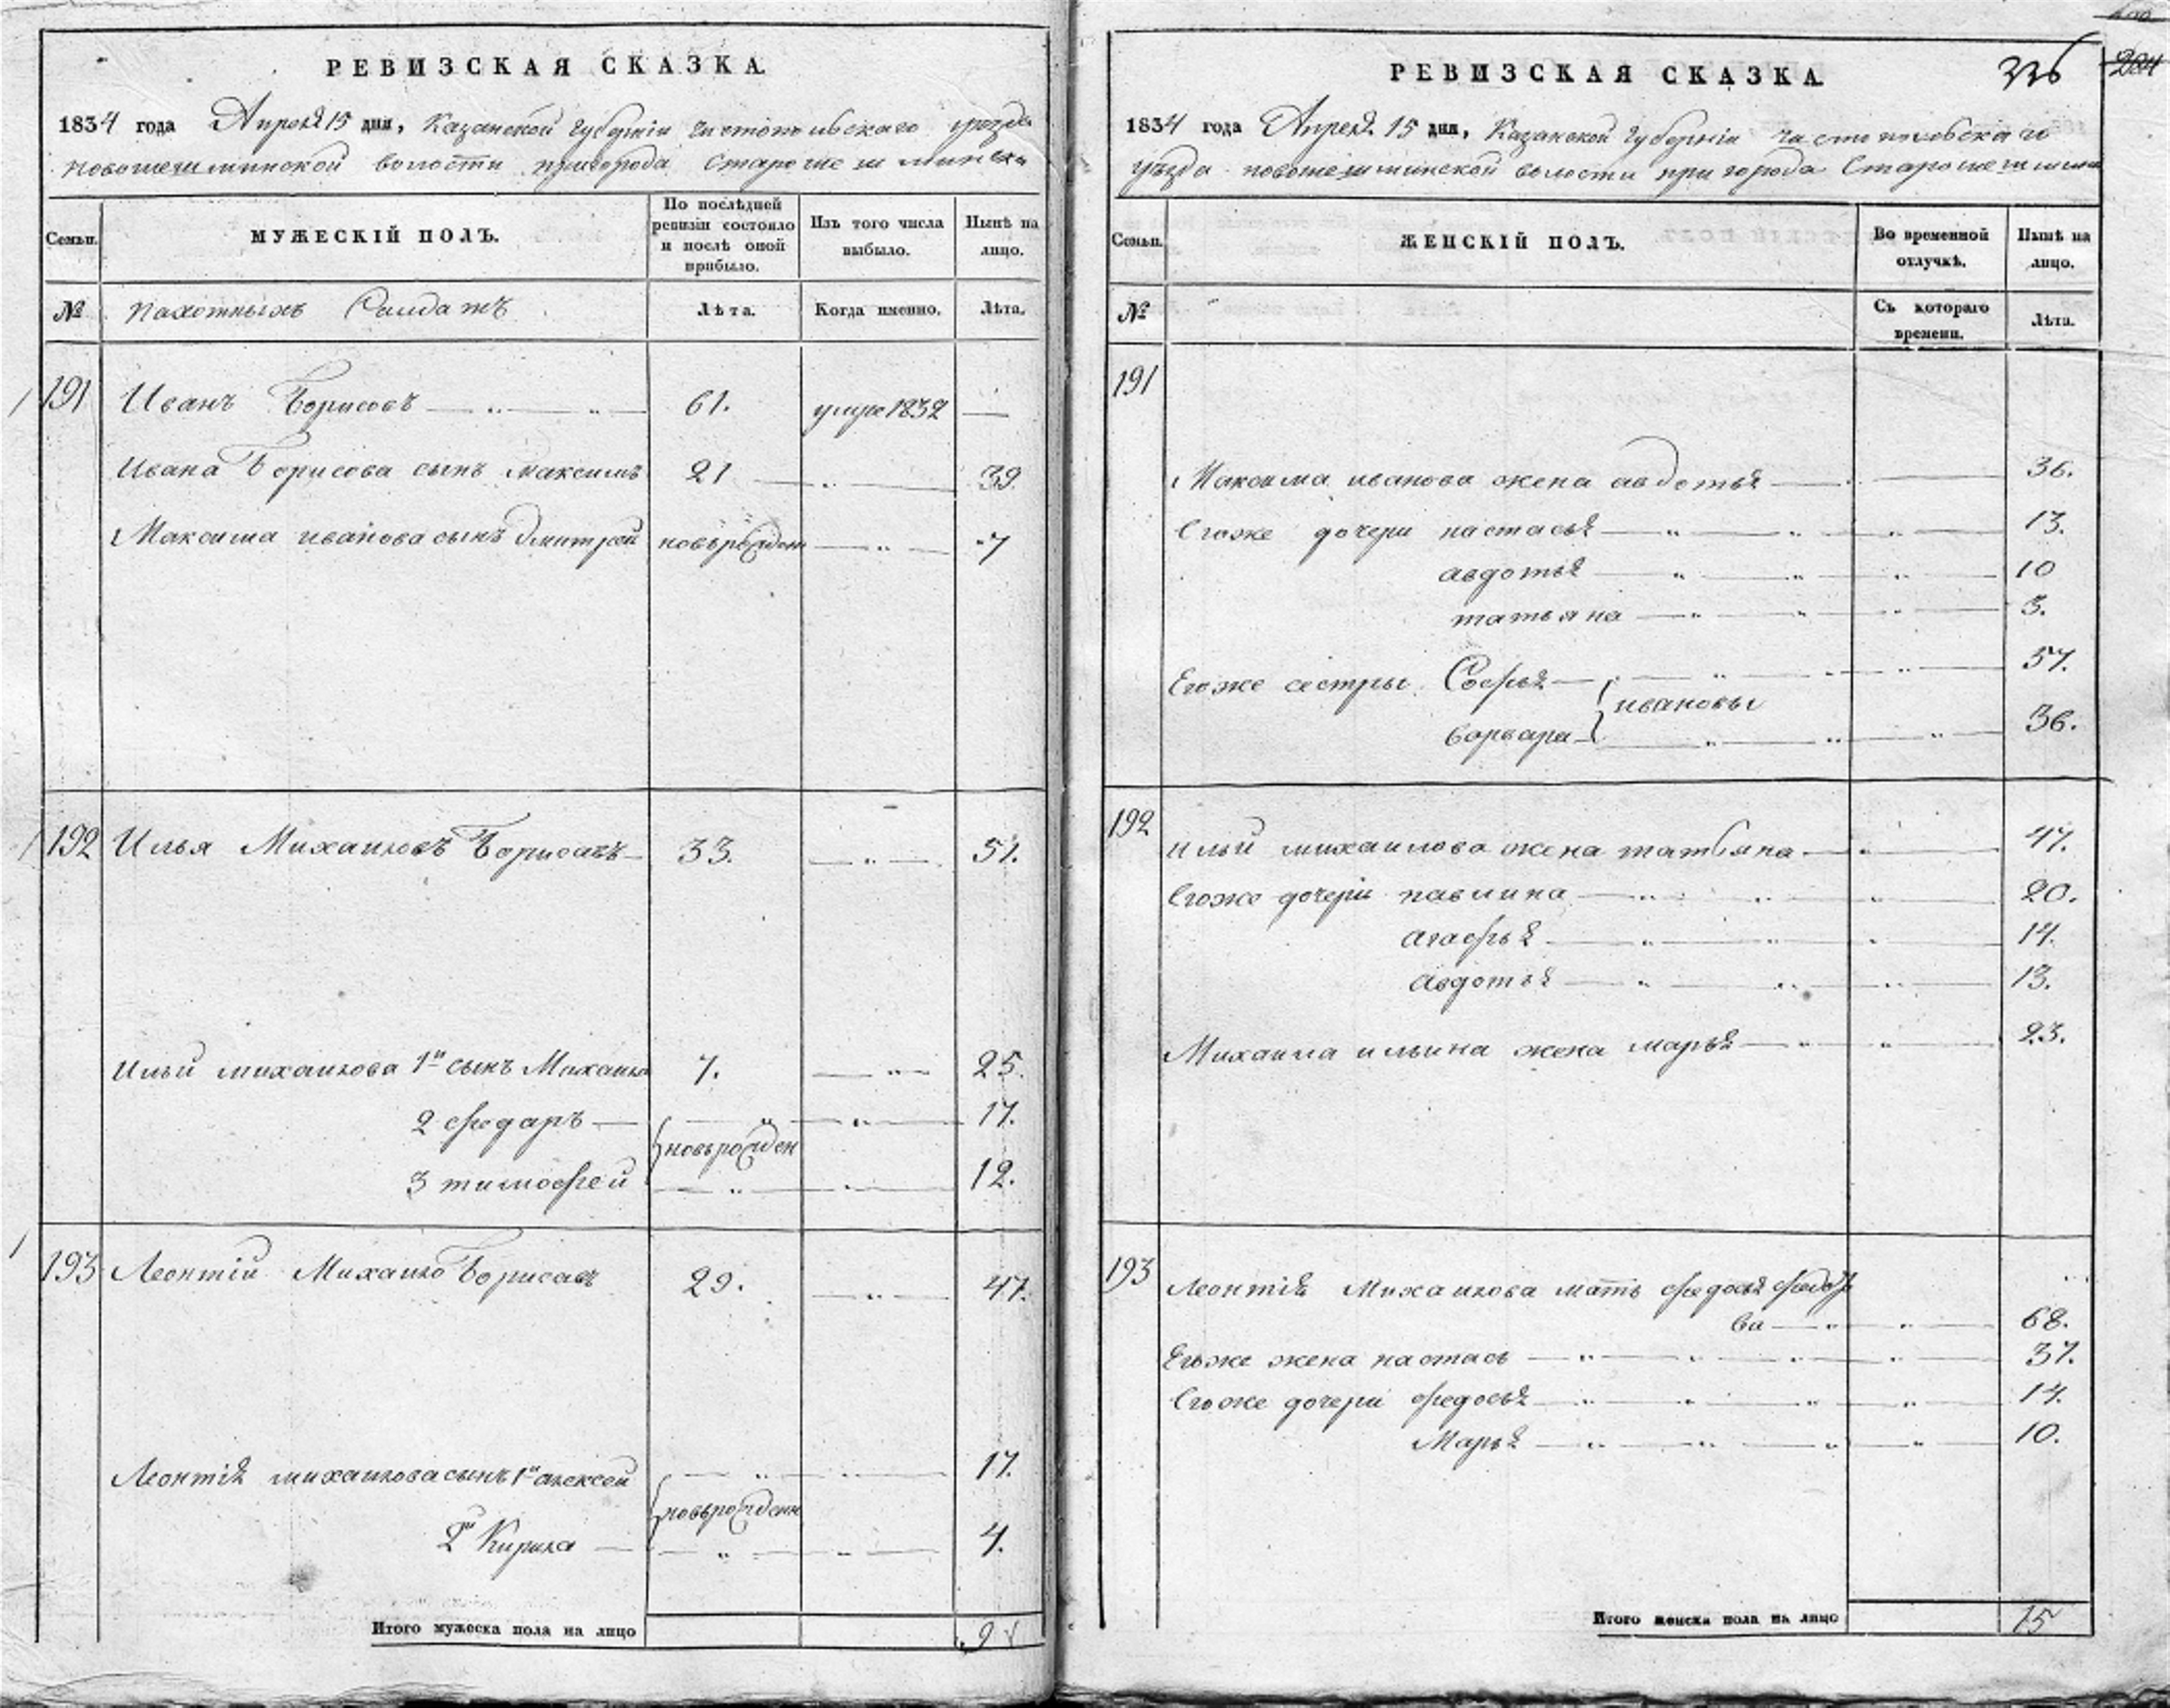 РЕВИЗСКАЯ СКАЗКА
1834 года Апреля 15 дня, Казанской губернiи Чистопольскаго уезда
новошешминской волости пригорода Старошешминска
Семьи. МУЖЕСКIЙ ПОЛЪ. По послѣдней ревизiи состояло и послѣ оной прибыло. Изъ того числа выбыло. Нынѣ на лицо.
№ пахотныхъ Солдатъ Лѣта. Когда именно. Лѣта.
191 Иванъ Борисовъ 61. умре 1832 —
Ивана Борисова сынъ Максимъ 21 39
Максима иванова сынъ Дмитрей новърожден 7
192 Илья Михаиловъ Борисавъ 33. 51.
Ильи михаилова 1й сынъ Михаило 7. 25.
2 федаръ 17.
новърожден
3 тимофей 12.
193 Леонтiй Михаило Борисавъ 29. 47.
Леонтiя михаилова сынъ 1й алексей 17.
новърожденн
2й Кирила 4.
Итого мужеска пола на лицо 9
РЕВИЗСКАЯ СКАЗКА
336
1834 года Апреля 15 дня, Казанской губернiи Чистопольскаго
уезда новошешминской волости пригорода Старошешминс
Семьи. ЖЕНСКIЙ ПОЛЪ. Во временной отлучкѣ. Нынѣ на лицо.
№ Съ котораго времени. Лѣта.
191
Максима иванова жена авдотья 36.
Егоже дочери настасья 13.
авдотья 10
татьяна 3.
Егоже сестры Софья 57.
ивановы
варвара 36.
192 ильи михаилова жена татьяна 47.
Егоже дочери павлина 20.
агафья 14.
авдотья 13.
Михаила ильина жена марья 23.
193 Леонтiя Михаилова мать федосья федоро
ва 68.
Егоже жена настась 37.
Егоже дочери федосья 14.
Марья 10.
Итого женска пола на лицо 15